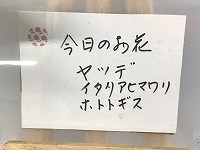 今日のお花
ヤツデ
イタリアヒマワリ
ホトトギス